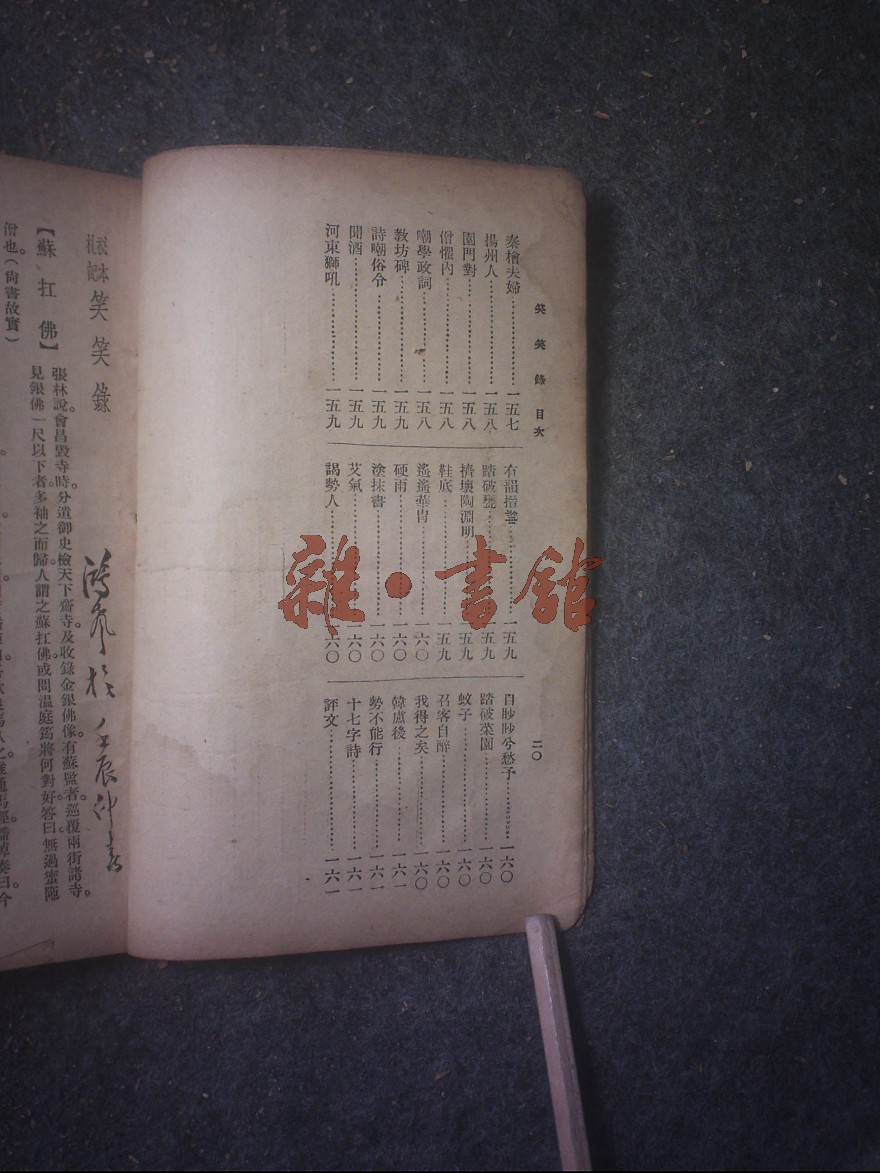 笑笑錄目次
二〇
秦檜夫婦……一五七
揚州人……一五八
園門對……一五八
僧懼內……一五八
嘲學政詞……一五八
教坊碑……一五九
詩嘲俗令……一五九
聞酒……一五九
河東獅吼……一五九
有韻……一五九
踏破甕……一五九
擠壞陶淵明……一五九
鞋底……一五九
遙遙華胄……一六〇
硬雨……一六〇
塗抹書……一六〇
艾氣……一六〇
謁勢人……一六〇
目眇眇兮愁予……一六〇
踏破菜園……一六〇
蚊子……一六〇
召客自醉……一六〇
我得之矣……一六〇
韓盧後……一六一
勢不能行……一六一
十七字詩……一六一
評文……一六一
笑笑錄
於壬辰仲
【蘇扛佛】
張林說。會昌毀寺時。分遣御史檢天下齋寺。及收錄金銀佛像。有蘇監者。巡覆兩街諸寺。
見銀佛一尺以下者。多袖之而歸。人謂之蘇扛佛。或問溫庭筠將何對好。答曰。無過蜜陁
僧也。(尙書故實)
雜·書館